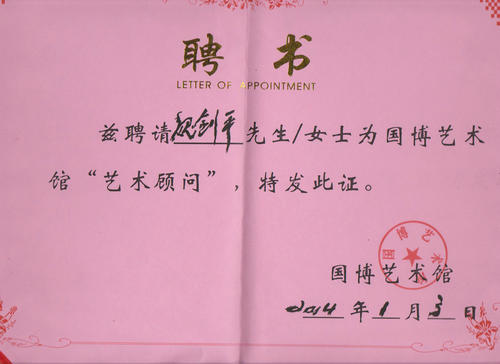 聘 书
LETTER OF APPOINTMENT
兹聘请 剑平 先生/女士为国博艺术
馆“艺术顾问”，特发此证。
国博艺术
国博艺术馆
2014 年 1 月 3 日